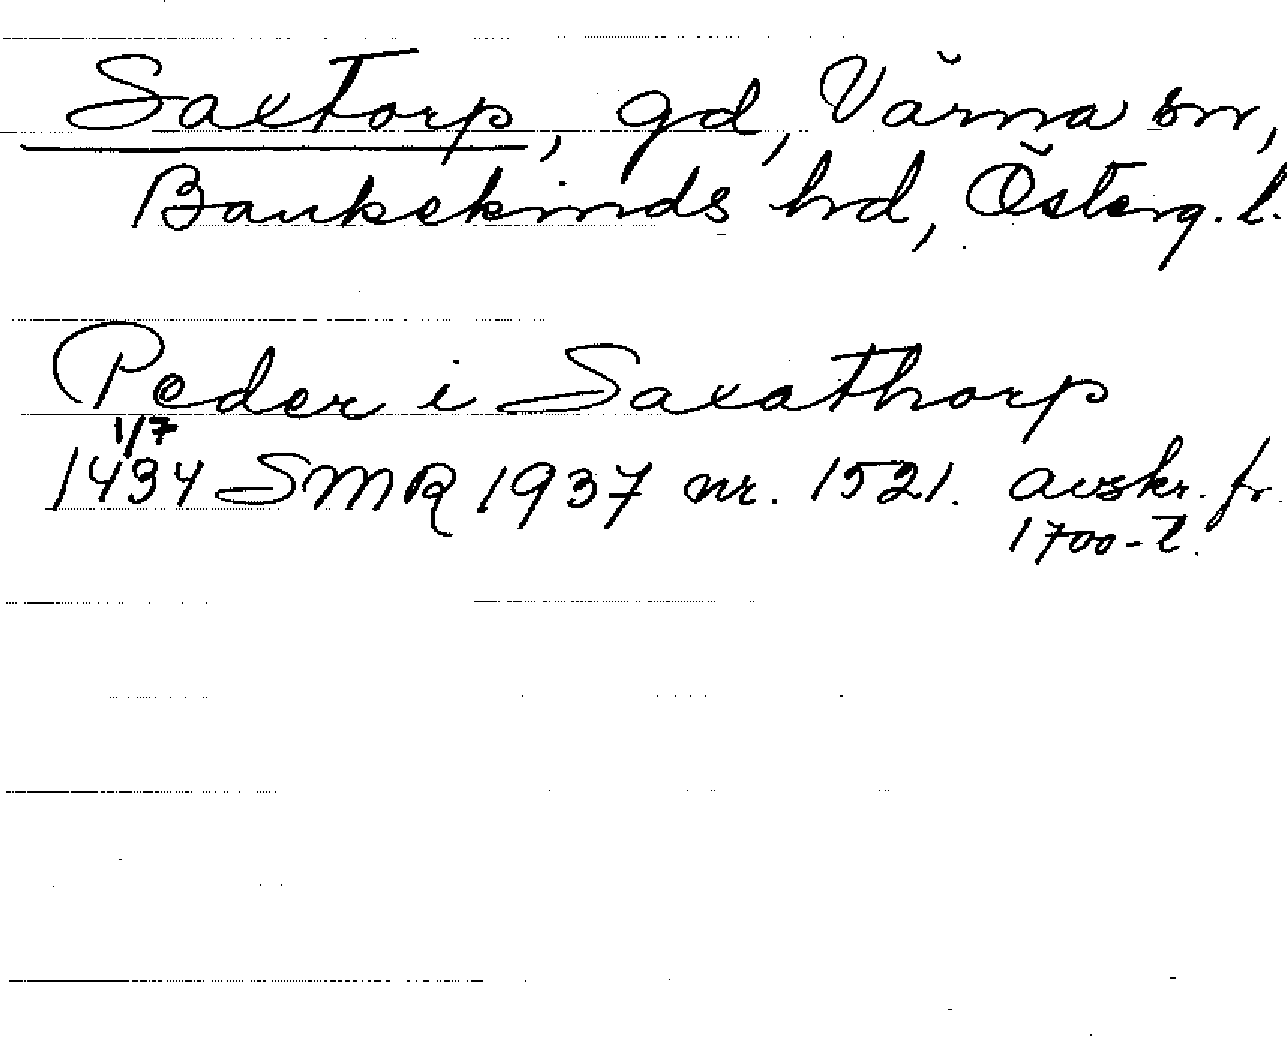 Saxtorp, gd, Värna sn,
Bankekinds hd, Österg. l.
Peder i Saxathorp
1/7
1434 SMR 1937 nr. 1521. avskr. fr.
1700-t.